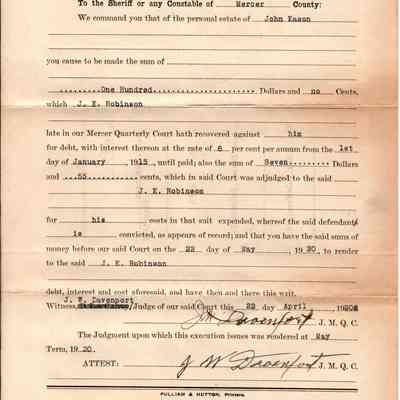 To the Sheriff or any Constable of Mercer County:
We command you that of the personal estate of John Kason
you cause to be made the sum of
.........One Hundred................... Dollars and no Cents,
which J. E. Robinson
late in our Mercer Quarterly Court hath recovered against him
for debt, with interest thereon at the rate of 6 per cent per annum from the 1st
day of January , 1915, until paid; also the sum of Seven......... Dollars
and ...55........... cents, which in said Court was adjudged to the said
J. E. Robinson
for his costs in that suit expended, whereof the said defendant
is convicted, as appears of record; and that you have the said sums of
money before our said Court on the 22 day of May , 1920, to render
to the said J. E. Robinson
debt, interest and cost aforesaid, and have then and there this writ.
J. W. Davenport
Witness, Judge of our said Court this 22 day April , 1920
J W Davenport J. M. Q. C.
The Judgment upon which this execution issues was rendered at May
Term, 1920.
ATTEST: J W Davenport J. M. Q. C.
PULLIAM & HUTTON,